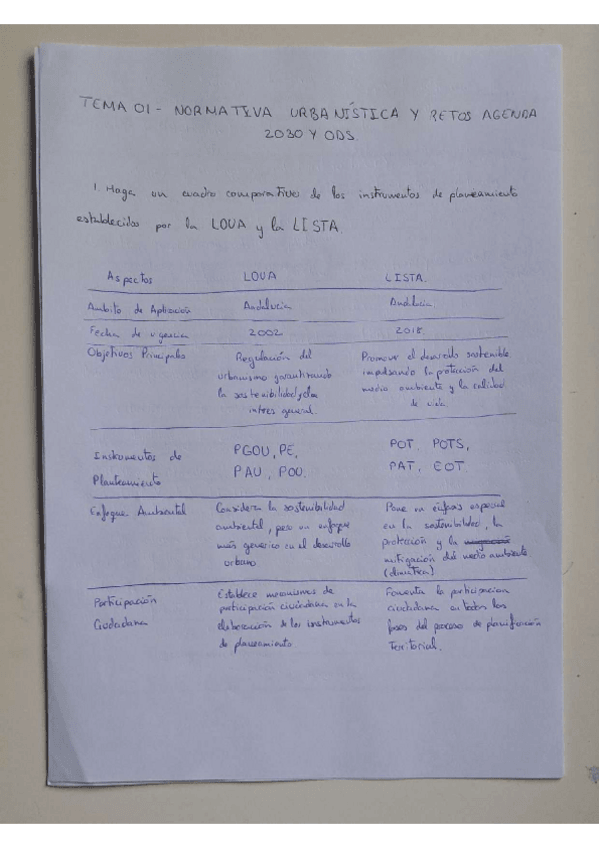 TEMA 01 - NORMATIVA URBANÍSTICA Y RETOS AGENDA
2030 Y ODS.
1. Haga un cuadro comparativo de los instrumentos de planeamiento
establecidos por la LOUA y la LISTA.
Aspectos LOUA LISTA.
Ámbito de Aplicación Andalucía Andalucía
Fecha de vigencia 2002 2018
Objetivos Principales
Regulación del
urbanismo garantizando
la sostenibilidad y el
interes general.
Promover el desarrollo sostenible
impulsando la protección del
medio ambiente y la calidad
de vida
Instrumentos de
Planteamiento
PGOU, PE,
PAU, POU.
POT, POTS,
PAT, EOT.
Enfoque Ambiental
Considera la sostenibilidad
ambiental, pero un enfoque
más generico en el desarrollo
urbano
Pone un énfasis especial
en la sostenibilidad, la
protección y la
mitigación del medio ambiente
(climática)
Participación
Ciudadana
Establece mecanismos de
participación ciudadana en la
elaboración de los instrumentos
de planeamiento
Fomenta la participacion
ciudadana en todas las
fases del proceso de planificación
Territorial.